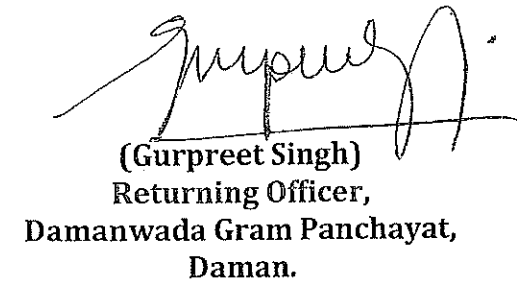 (Gurpreet Singh)
Returning Officer,
Damanwada Gram Panchayat,
Daman.